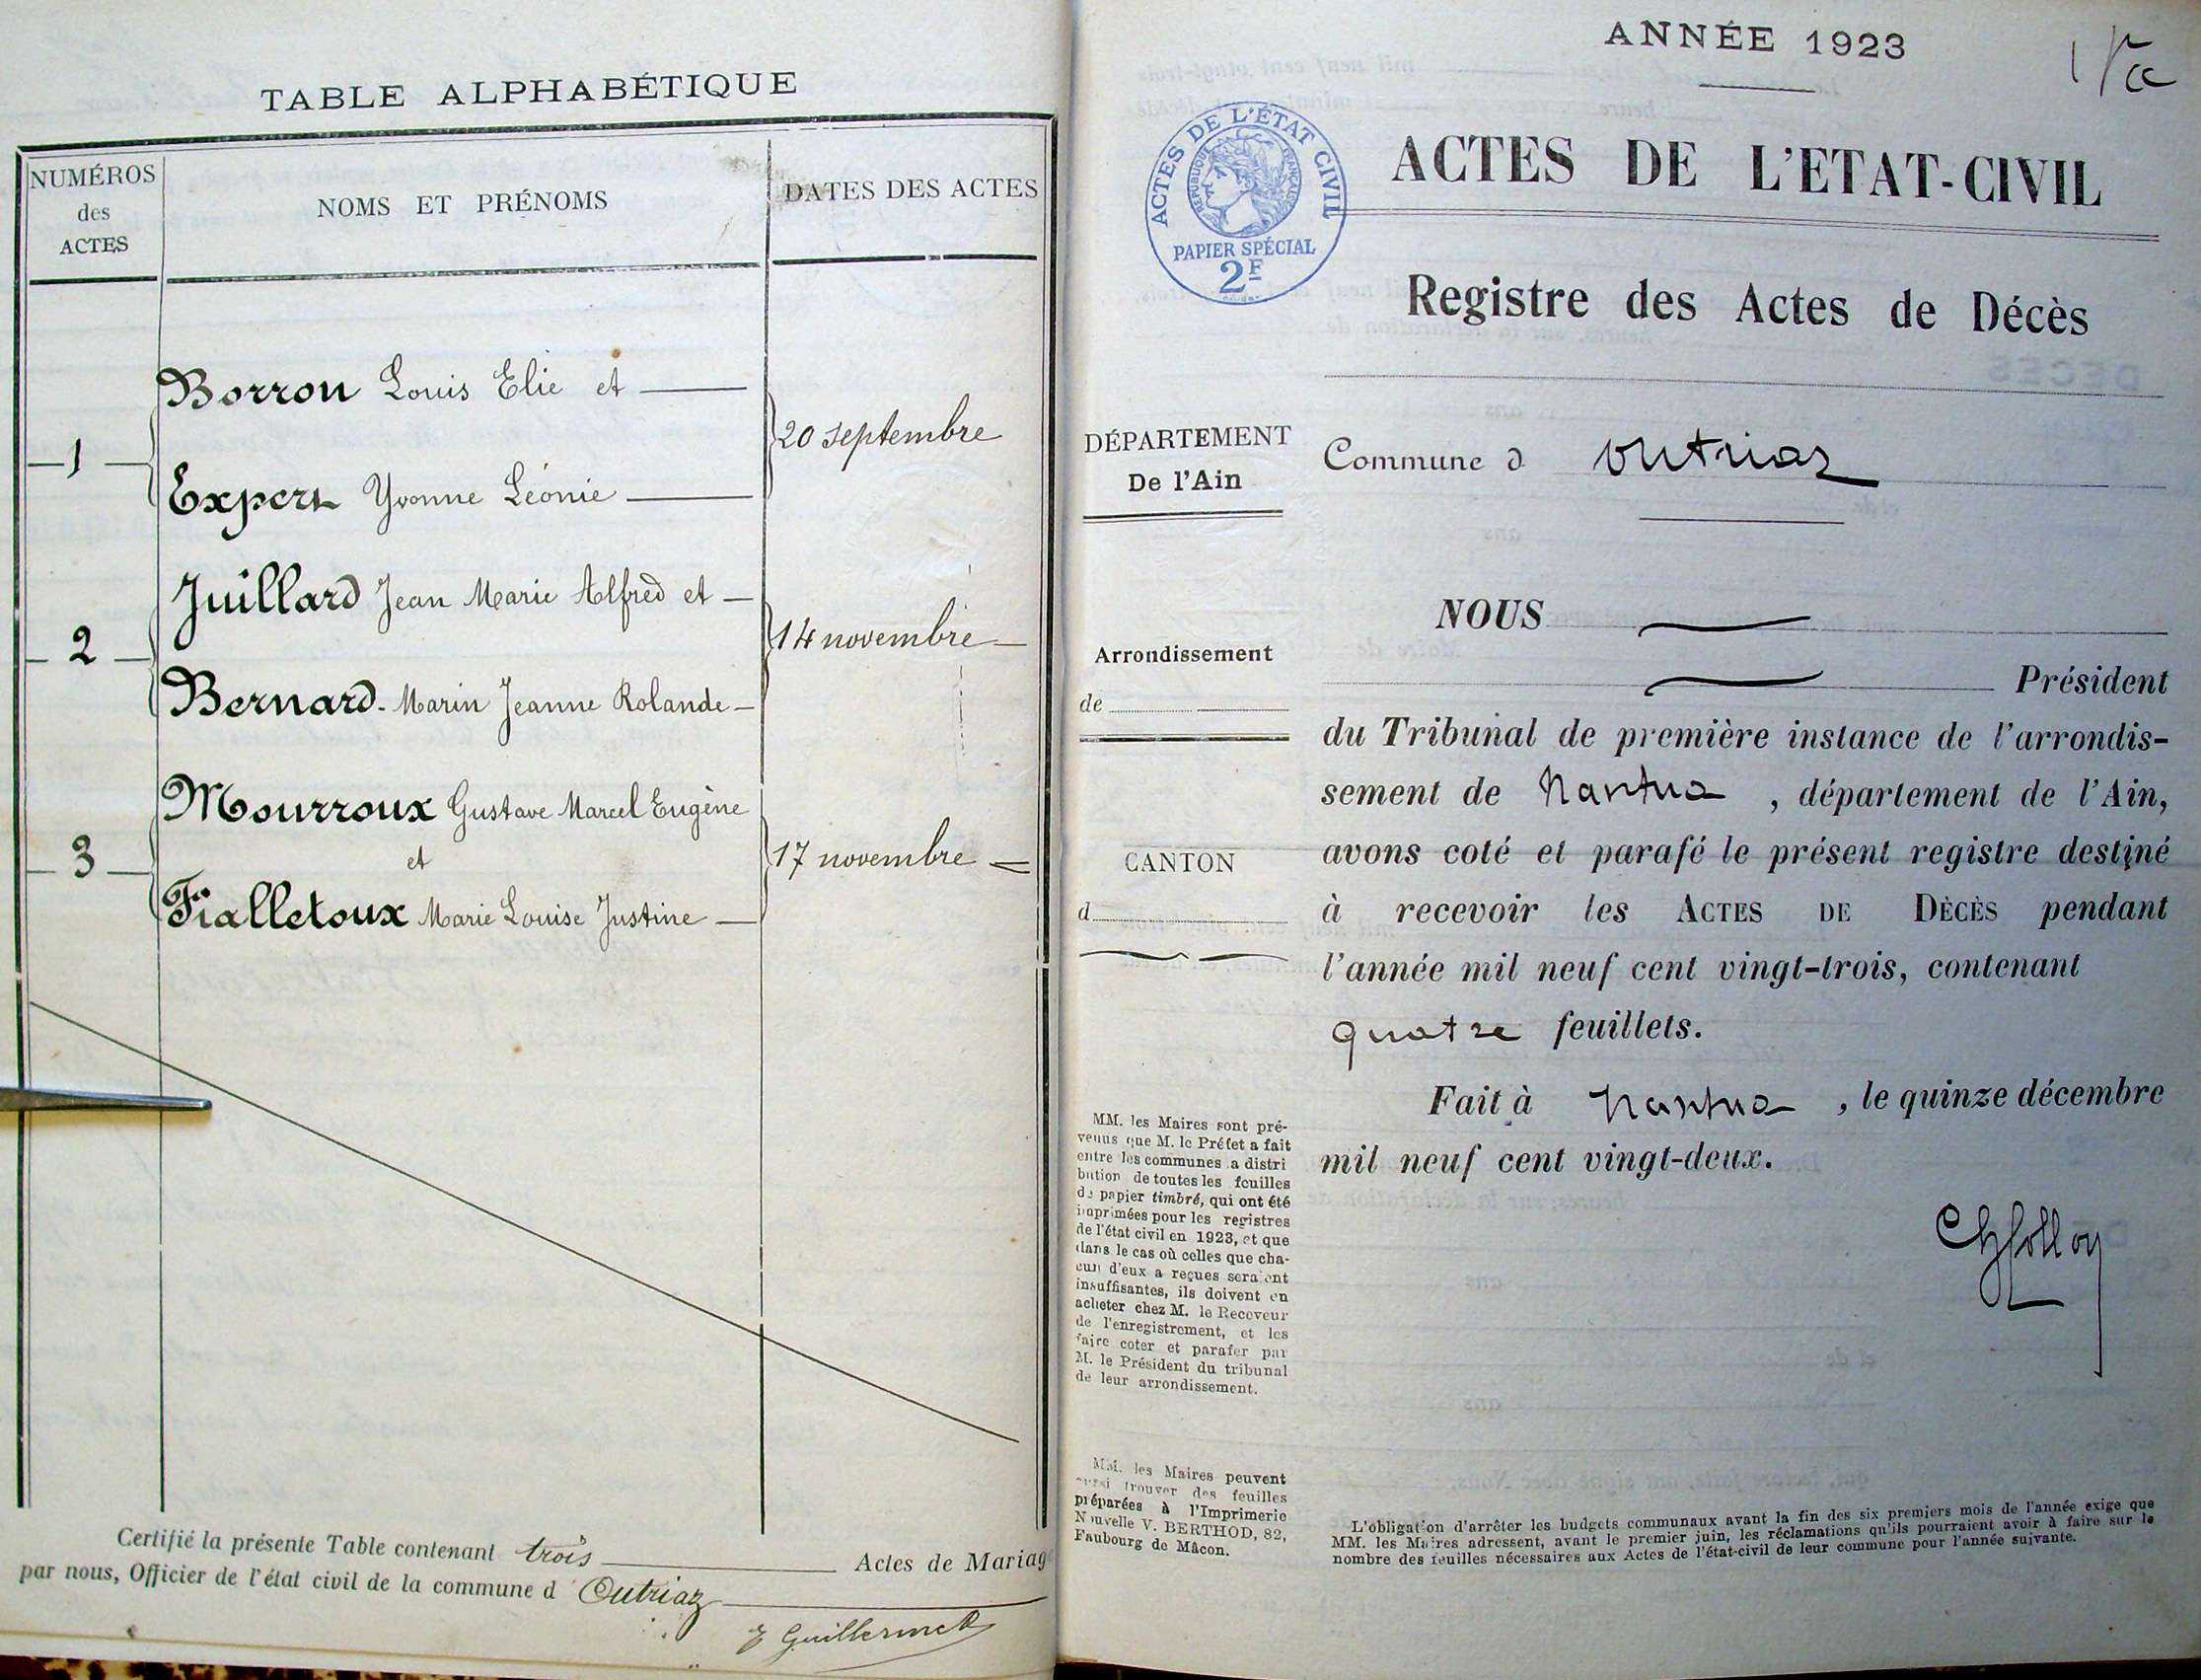 TABLE ALPHABÉTIQUE
NUMÉROS
des
ACTES
NOMS ET PRÉNOMS
DATES DES ACTES
Borron Louis Elie et
1
20 septembre
Expert Yvonne Léonie
Juillard Jean Marie Alfred et
2
14 novembre
Bernard Marin Jeanne Rolande
Mourroux Gustave Marcel Eugène
3
et
17 novembre
Fialletoux Marie Louise Justine
Certifié la présente Table contenant trois Actes de Mariag
par nous, Officier de l'état civil de la commune d Outriaz
E Guillermet
ANNÉE 1923
ACTES DE L'ÉTAT CIVIL
RÉPUBLIQUE FRANÇAISE
PAPIER SPÉCIAL
2F
ACTES DE L'ETAT-CIVIL
Registre des Actes de Décès
DÉPARTEMENT
De l'Ain
Commune d Outriaz
Arrondissement
de
CANTON
d
NOUS
Président
du Tribunal de première instance de l'arrondis-
sement de Nantua , département de l'Ain,
avons coté et parafé le présent registre destiné
à recevoir les ACTES DE DÉCÈS pendant
l'année mil neuf cent vingt-trois, contenant
quatre feuillets.
Fait à Nantua , le quinze décembre
mil neuf cent vingt-deux.
MM. les Maires sont pré-
venus que M. le Préfet a fait
entre les communes la distri
bution de toutes les feuilles
de papier timbré, qui ont été
imprimées pour les registres
de l'état civil en 1923, et que
dans le cas où celles que cha-
cun d'eux a reçues seraient
insuffisantes, ils doivent en
acheter chez M. le Receveur
de l'enregistrement, et les
faire coter et parafer par
M. le Président du tribunal
de leur arrondissement.
MM. les Maires peuvent
aussi trouver des feuilles
préparées à l'Imprimerie
Nouvelle V. BERTHOD, 82,
Faubourg de Mâcon.
L'obligation d'arrêter les budgets communaux avant la fin des six premiers mois de l'année exige que
MM. les Maires adressent, avant le premier juin, les réclamations qu'ils pourraient avoir à faire sur le
nombre des feuilles nécessaires aux Actes de l'état-civil de leur commune pour l'année suivante.